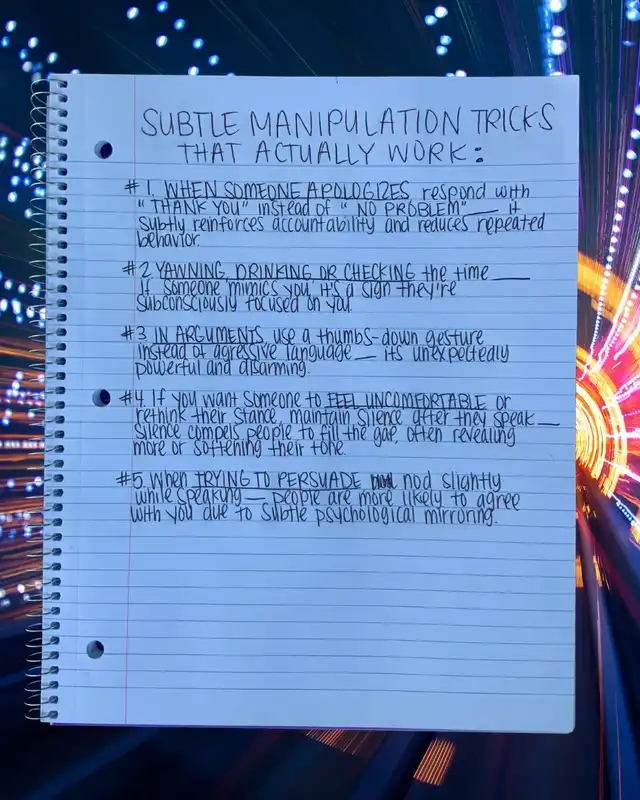 SUBTLE MANIPULATION TRICKS
THAT ACTUALLY WORK:
#1. WHEN SOMEONE APOLOGIZES, respond with
"THANK YOU" instead of "NO PROBLEM" — it
subtly reinforces accountability and reduces repeated
behavior.
#2 YAWNING, DRINKING OR CHECKING the time —
if someone mimics you, it's a sign they're
subconsciously focused on you.
#3 IN ARGUMENTS, use a thumbs-down gesture
instead of agressive language — its unexpectedly
powerful and disarming.
#4 If you want someone to FEEL UNCOMFORTABLE or
rethink their stance, maintain silence after they speak —
silence compels people to fill the gap, often revealing
more or softening their tone.
#5. When TRYING TO PERSUADE nod slightly
while speaking — people are more likely to agree
with you due to subtle psychological mirroring.